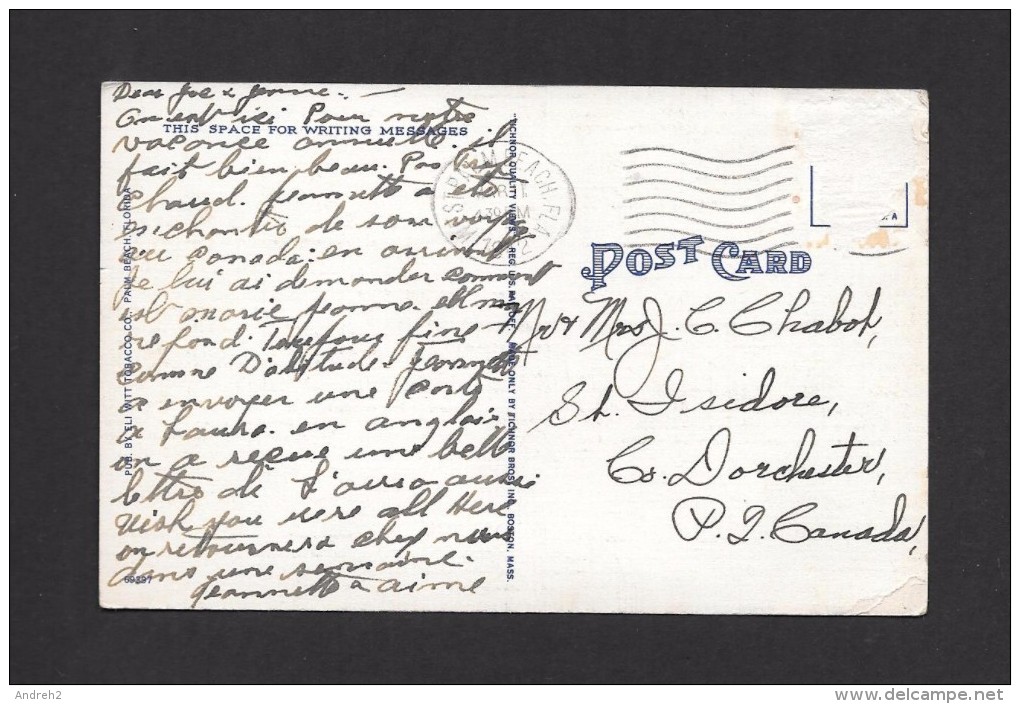 Dear Joe & Jeanne. —
On est ici Pour notre
THIS SPACE FOR WRITING MESSAGES
vacance annuelle. il
fait bien beau. Pas
chaud. Jeannette a été
enchanté de son voyage
au Canada. en arrivant
Je lui ai demander comment
est Marie Jeanne. elle me
refond. Toujours fine
comme D'abitude. Jeannette
a envoyer une Carte
a Laura. en anglais
on a reçue une belle
lettre de Laura aussi
Wish you were all Here
on retournera chez nous
dans une semaine.
Jeannette & aime
69397
PUB. BY ELI WITT TOBACCO CO., PALM BEACH, FLORIDA
"TICHNOR QUALITY VIEWS," REG. U. S. PAT. OFF. MADE ONLY BY TICHNOR BROS. INC., BOSTON, MASS.
WEST PALM BEACH, FLA.
POST CARD
Mr & Mrs J. C. Chabot,
St. Isidore,
Co. Dorchester,
P. Q. Canada,
Andreh2
www.delcampe.net